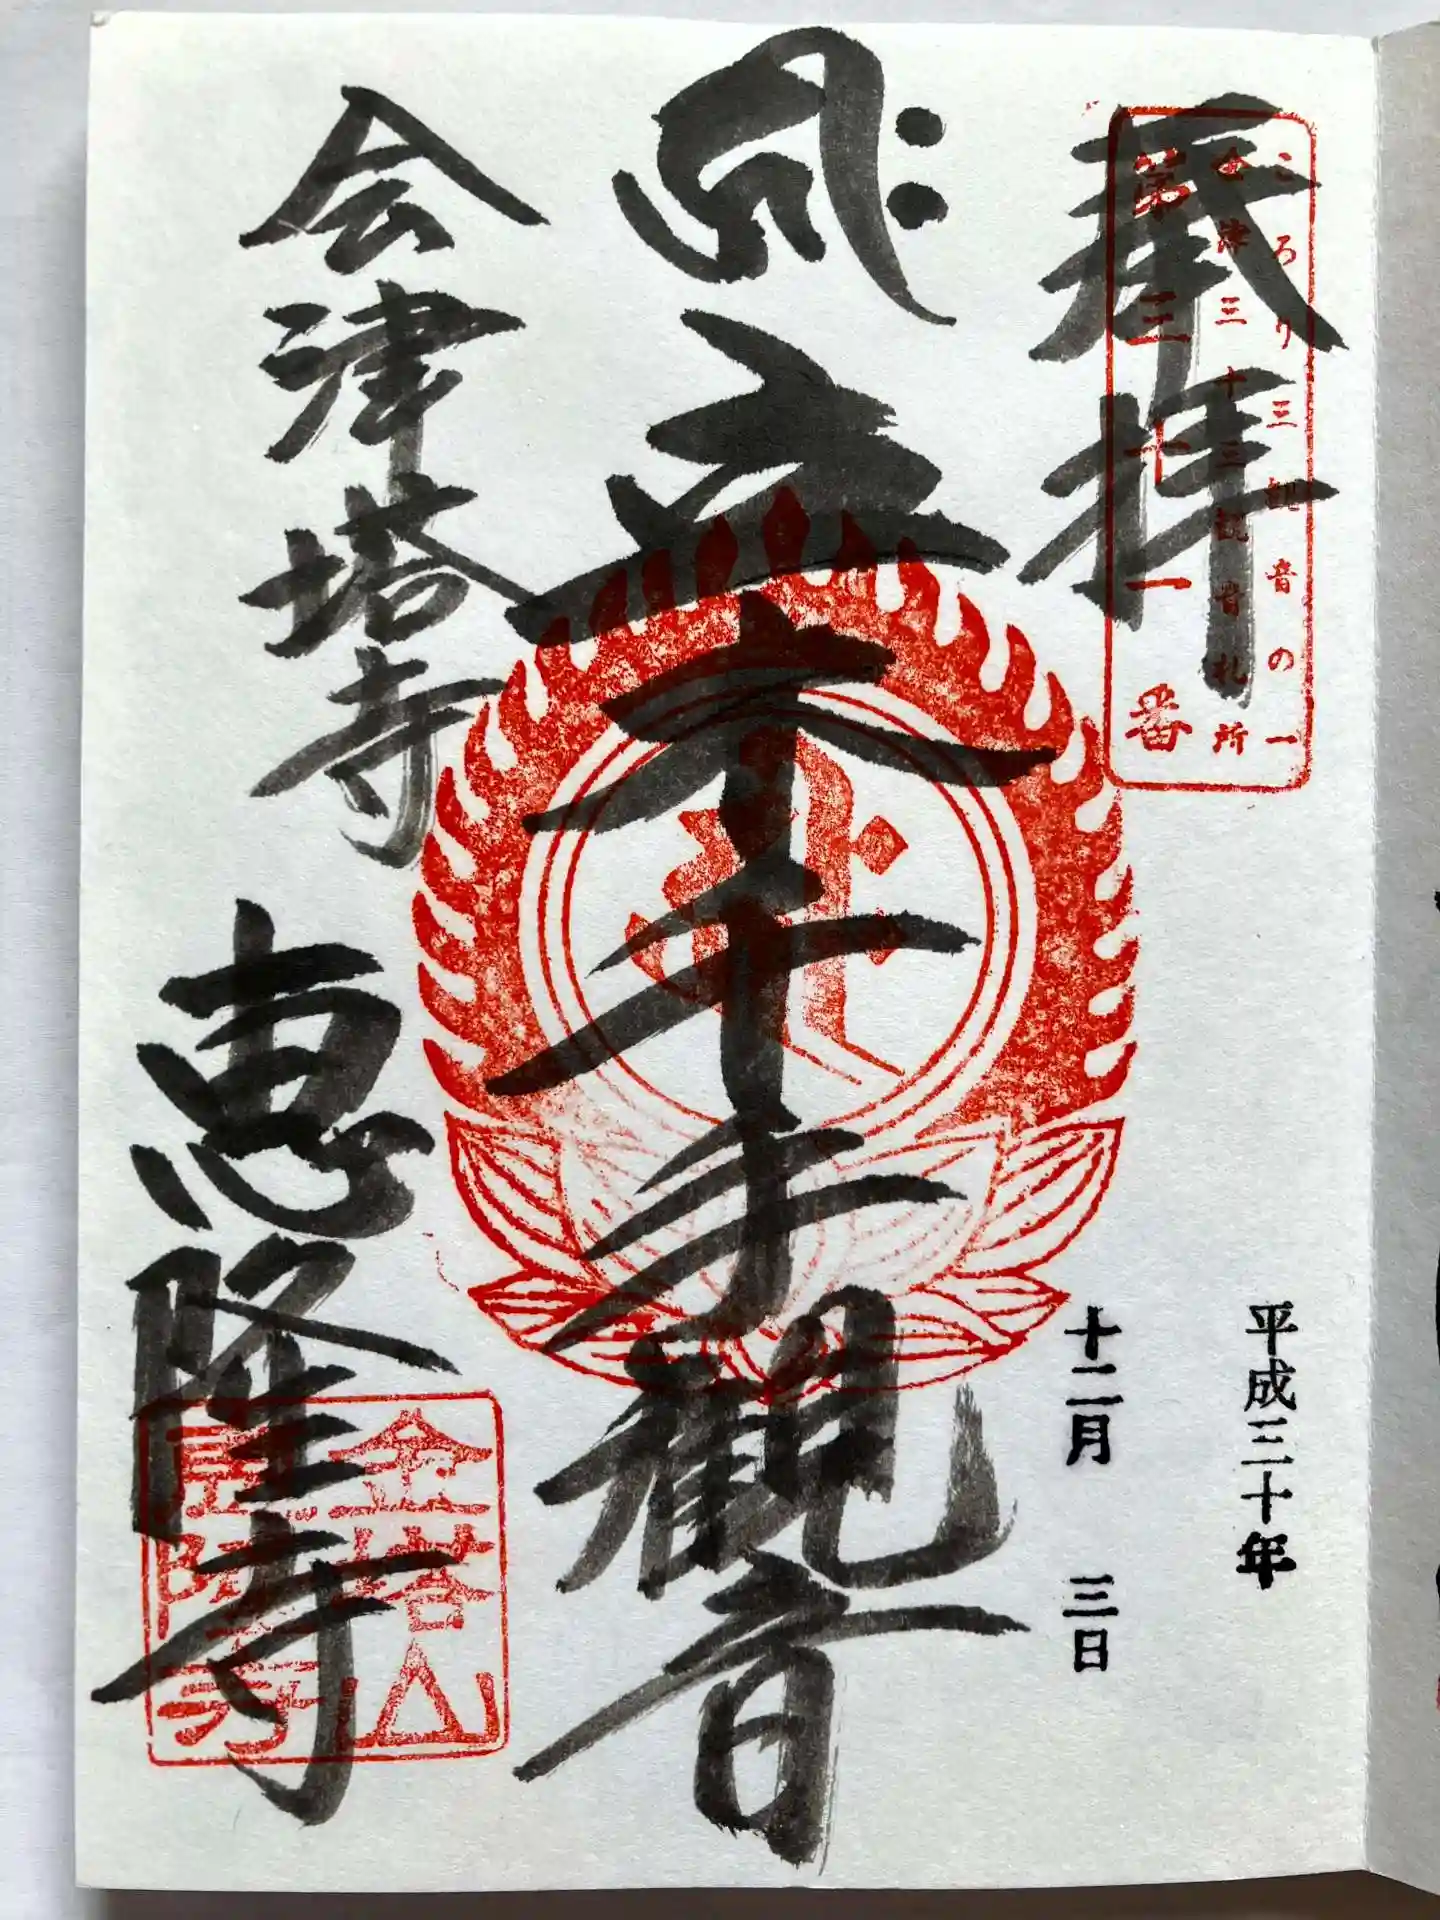 奉拝
ころり三観音の一
会津三十三観音札所
第三十一番
平成三十年
十二月 三日
立木千手観音
会津塔寺
恵隆寺
金塔山
恵隆寺